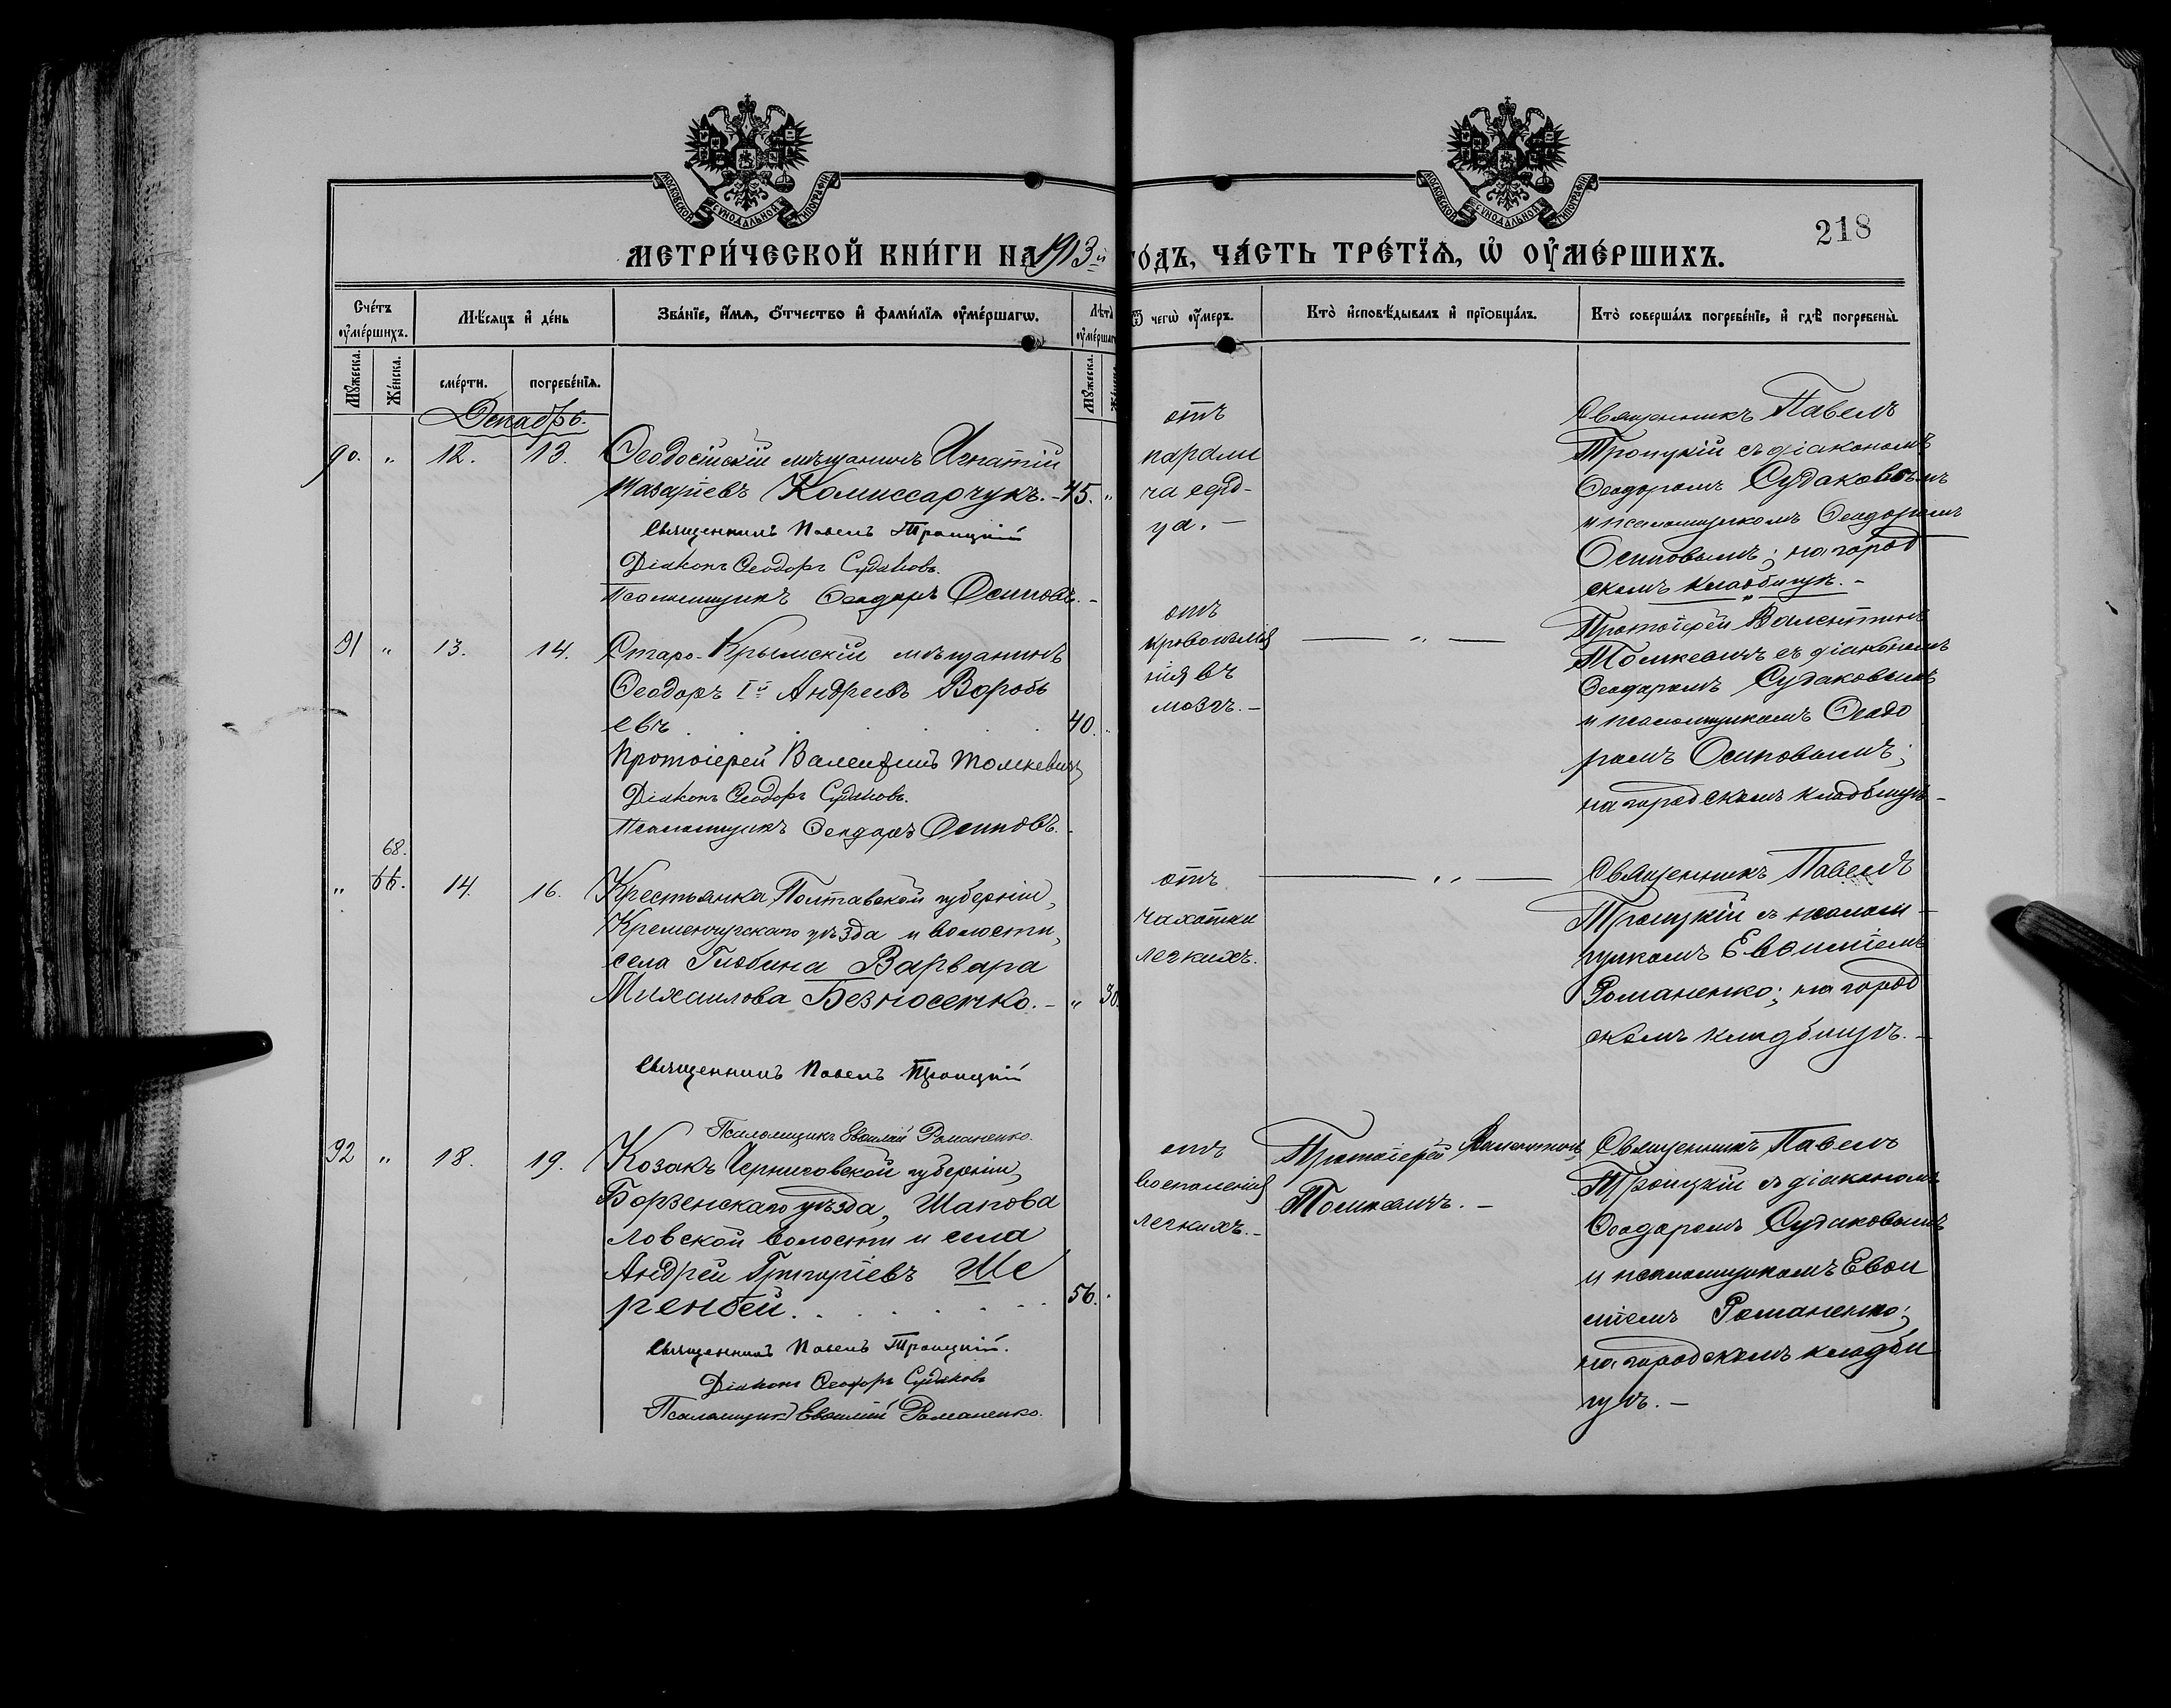 МОСКОВСКОЙ СѴНОДАЛЬНОЙ ТИПОГРАФІИ
МОСКОВСКОЙ СѴНОДАЛЬНОЙ ТИПОГРАФІИ
218
МЕТРИ́ЧЕСКОЙ КНИ́ГИ НА 1913й го́дъ, ЧА́СТЬ ТРЕ́ТЇѦ, Ѡ҆ ОУ҆МЕ́РШИХЪ.
Сче́тъ оу҆ме́ршихъ.
Мѣ́сяцъ и҆ де́нь
Зва́нїе, и҆́мѧ, ѻ҆́тчество и҆ фами́лїѧ оу҆ме́ршагѡ.
Лѣта̀ оу҆ме́ршаг
Ѿ чегѡ̀ оу҆́меръ.
Кто̀ и҆сповѣ́дывалъ и҆ прїѡбща́лъ.
Кто̀ соверша́лъ погребе́нїе, и҆ гдѣ̀ погребены̀.
Мꙋ́жеска.
Же́нска.
сме́рти.
погребе́нїѧ.
Мꙋ́жеска.
Декабрь.
90. „ 12. 13.
Ѳеодосійскій мѣщанинъ Игнатій
Назаріевъ Комиссарчукъ. – 45. „
Священникъ Павелъ Троицкій
Діаконъ Ѳеодоръ Судаковъ.
Псаломщикъ Ѳеодоръ Осиповъ. –
отъ
парали
ча серд-
ца. –
Священникъ Павелъ
Троицкій съ діакономъ
Ѳеодоромъ Судаковымъ
и псаломщикомъ Ѳеодоромъ
Осиповымъ; на город
скомъ кладбищѣ. –
91 „ 13. 14.
Старо-Крымскій мѣщанинъ
Ѳеодоръ Iй Андреевъ Воробь
евъ . . . . . 40. „
Протоіерей Валентинъ Томкевичъ
Діаконъ Ѳеодоръ Судаковъ.
Псаломщикъ Ѳеодоръ Осиповъ. –
отъ
кровоизлія
нія въ
мозгъ. –
— „ —
Протоіерей Валентинъ
Томкевичъ съ діакономъ
Ѳеодоромъ Судаковымъ
и псаломщикомъ Ѳеодо
ромъ Осиповымъ;
на городскомъ кладбищѣ –
68.
„ 66. 14. 16.
Крестьянка Полтавской губерніи,
Кременчугскаго уѣзда и волости,
села Глобина Варвара
Михаилова Безносенко. – „ 30.
Священникъ Павелъ Троицкій
Псаломщикъ Евѳимій Романенко.
отъ
чахотки
легкихъ.
— „ —
Священникъ Павелъ
Троицкій съ псалом –
щикомъ Евѳиміемъ
Романенко; на город
скомъ кладбищѣ. –
92 „ 18. 19.
Козакъ Черниговской губерніи,
Борзенскаго уѣзда, Шапова
ловской волости и села
Андрей Григоріевъ Ше
ренбей. . . . . . . . 56. „
Священникъ Павелъ Троицкій.
Діаконъ Ѳеодоръ Судаковъ
Псаломщикъ Евѳимій Романенко.
отъ
воспаленія
легкихъ. –
Протоіерей Валентинъ
Томкевичъ. –
Священникъ Павелъ
Троицкій съ діакономъ
Ѳеодоромъ Судаковымъ
и псаломщикомъ Евѳи
міемъ Романенко;
на городскомъ кладби
щѣ. –